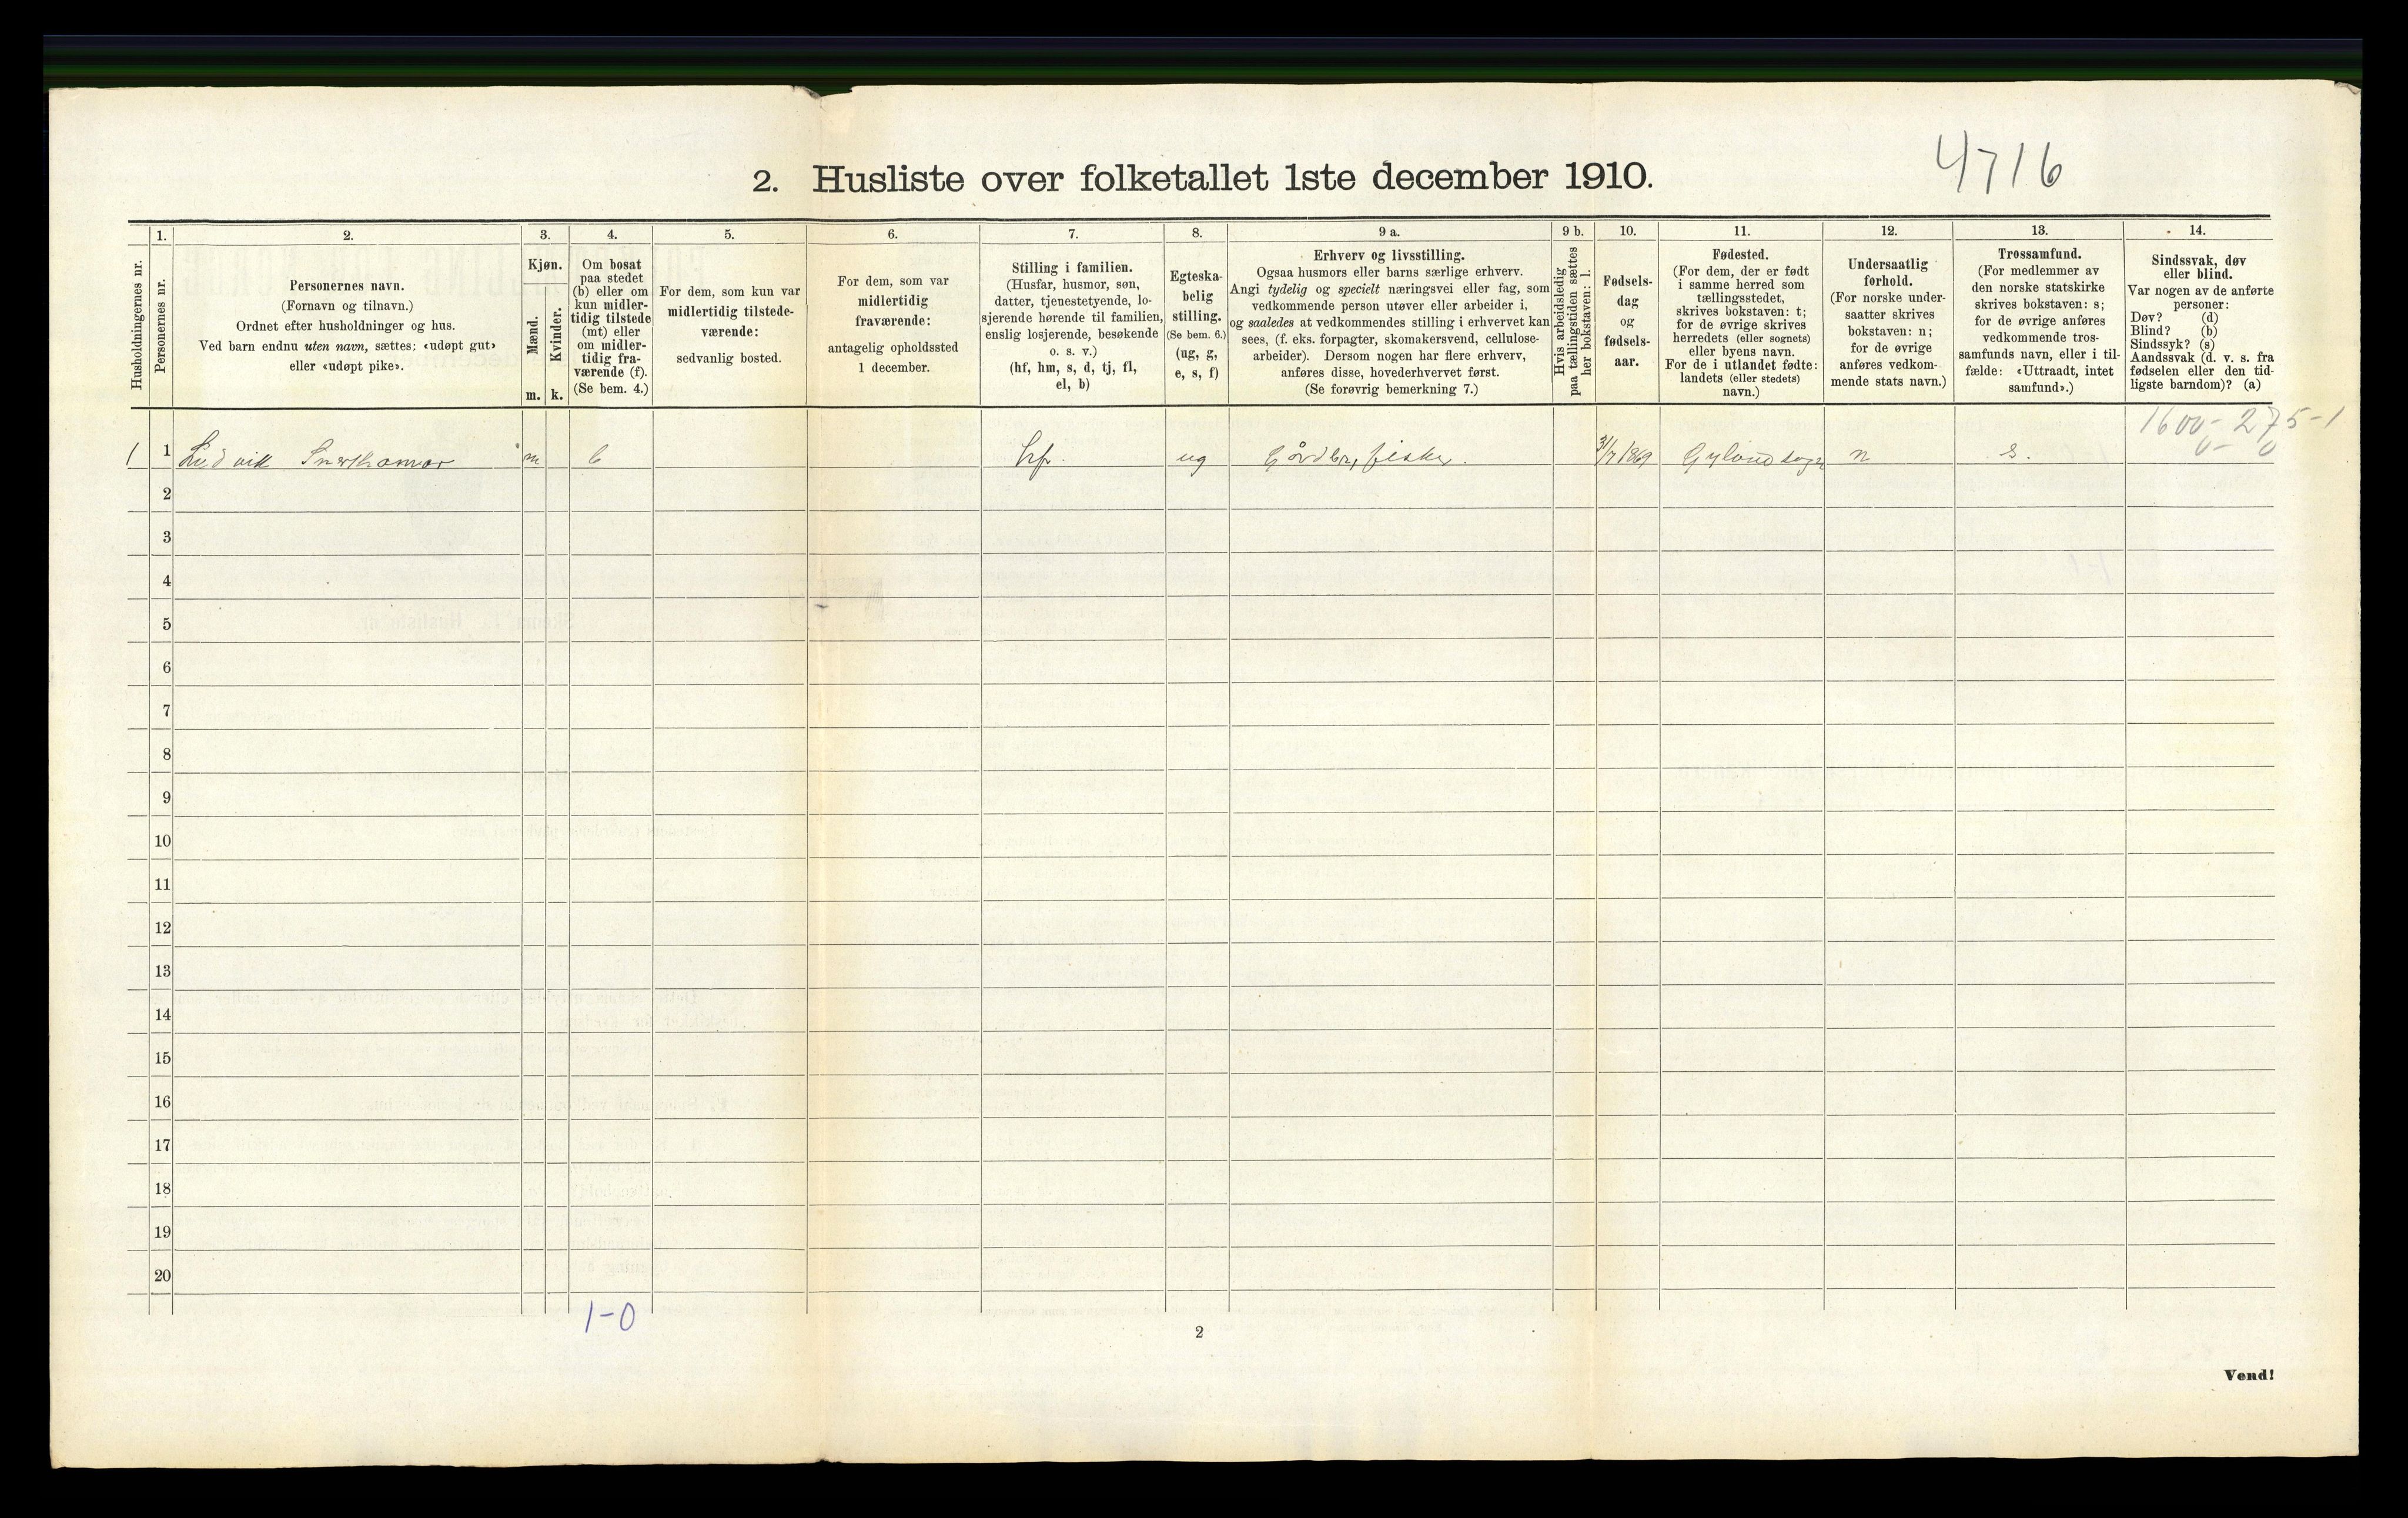 4716
2. Husliste over folketallet 1ste december 1910.
Husholdningernes nr.
1.
Personernes nr.
2.
Personernes navn.
(Fornavn og tilnavn.)
Ordnet efter husholdninger og hus.
Ved barn endnu uten navn, sættes: «udøpt gut»
eller «udøpt pike».
3.
Kjøn.
Mænd.
Kvinder.
m. k.
4.
Om bosat
paa stedet
(b) eller om
kun midler-
tidig tilstede
(mt) eller
om midler-
tidig fra-
værende (f).
(Se bem. 4.)
5.
For dem, som kun var
midlertidig tilstede-
værende:
sedvanlig bosted.
6.
For dem, som var
midlertidig
fraværende:
antagelig opholdssted
1 december.
7.
Stilling i familien.
(Husfar, husmor, søn,
datter, tjenestetyende, lo-
sjerende hørende til familien,
enslig losjerende, besøkende
o. s. v.)
(hf, hm, s, d, tj, fl,
el, b)
8.
Egteska-
belig
stilling.
(Se bem. 6.)
(ug, g,
e, s, f)
9 a.
Erhverv og livsstilling.
Ogsaa husmors eller barns særlige erhverv.
Angi tydelig og specielt næringsvei eller fag, som
vedkommende person utøver eller arbeider i,
og saaledes at vedkommendes stilling i erhvervet kan
sees, (f. eks. forpagter, skomakersvend, cellulose-
arbeider). Dersom nogen har flere erhverv,
anføres disse, hovederhvervet først.
(Se forøvrig bemerkning 7.)
9 b.
Hvis arbeidsledig
paa tællingstiden sættes
her bokstaven: l.
10.
Fødsels-
dag
og
fødsels-
aar.
11.
Fødested.
(For dem, der er født
i samme herred som
tællingsstedet,
skrives bokstaven: t;
for de øvrige skrives
herredets (eller sognets)
eller byens navn.
For de i utlandet fødte:
landets (eller stedets)
navn.)
12.
Undersaatlig
forhold.
(For norske under-
saatter skrives
bokstaven: n;
for de øvrige
anføres vedkom-
mende stats navn.)
13.
Trossamfund.
(For medlemmer av
den norske statskirke
skrives bokstaven: s;
for de øvrige anføres
vedkommende tros-
samfunds navn, eller i til-
fælde: «Uttraadt, intet
samfund».)
14.
Sindssvak, døv
eller blind.
Var nogen av de anførte
personer:
Døv? (d)
Blind? (b)
Sindssyk? (s)
Aandssvak (d. v. s. fra
fødselen eller den tid-
ligste barndom)? (a)
1600 - 275 - 1
0 - 0
1 1 Ludvik m b hf. ug Gårdbr, fisker. 1869 Gyland sogn n s.
2
3
4
5
6
7
8
9
10
11
12
13
14
15
16
17
18
19
20
1-0
2
Vend!